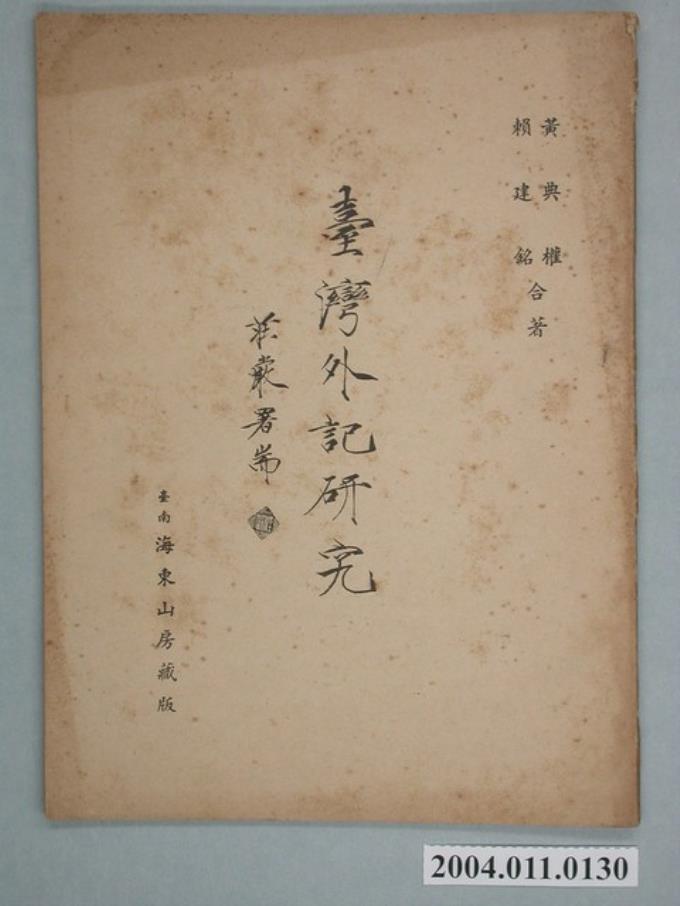 黃典權
賴建銘
合著
臺灣外記研究
莊嚴署耑
臺南海東山房藏版
2004.011.0130